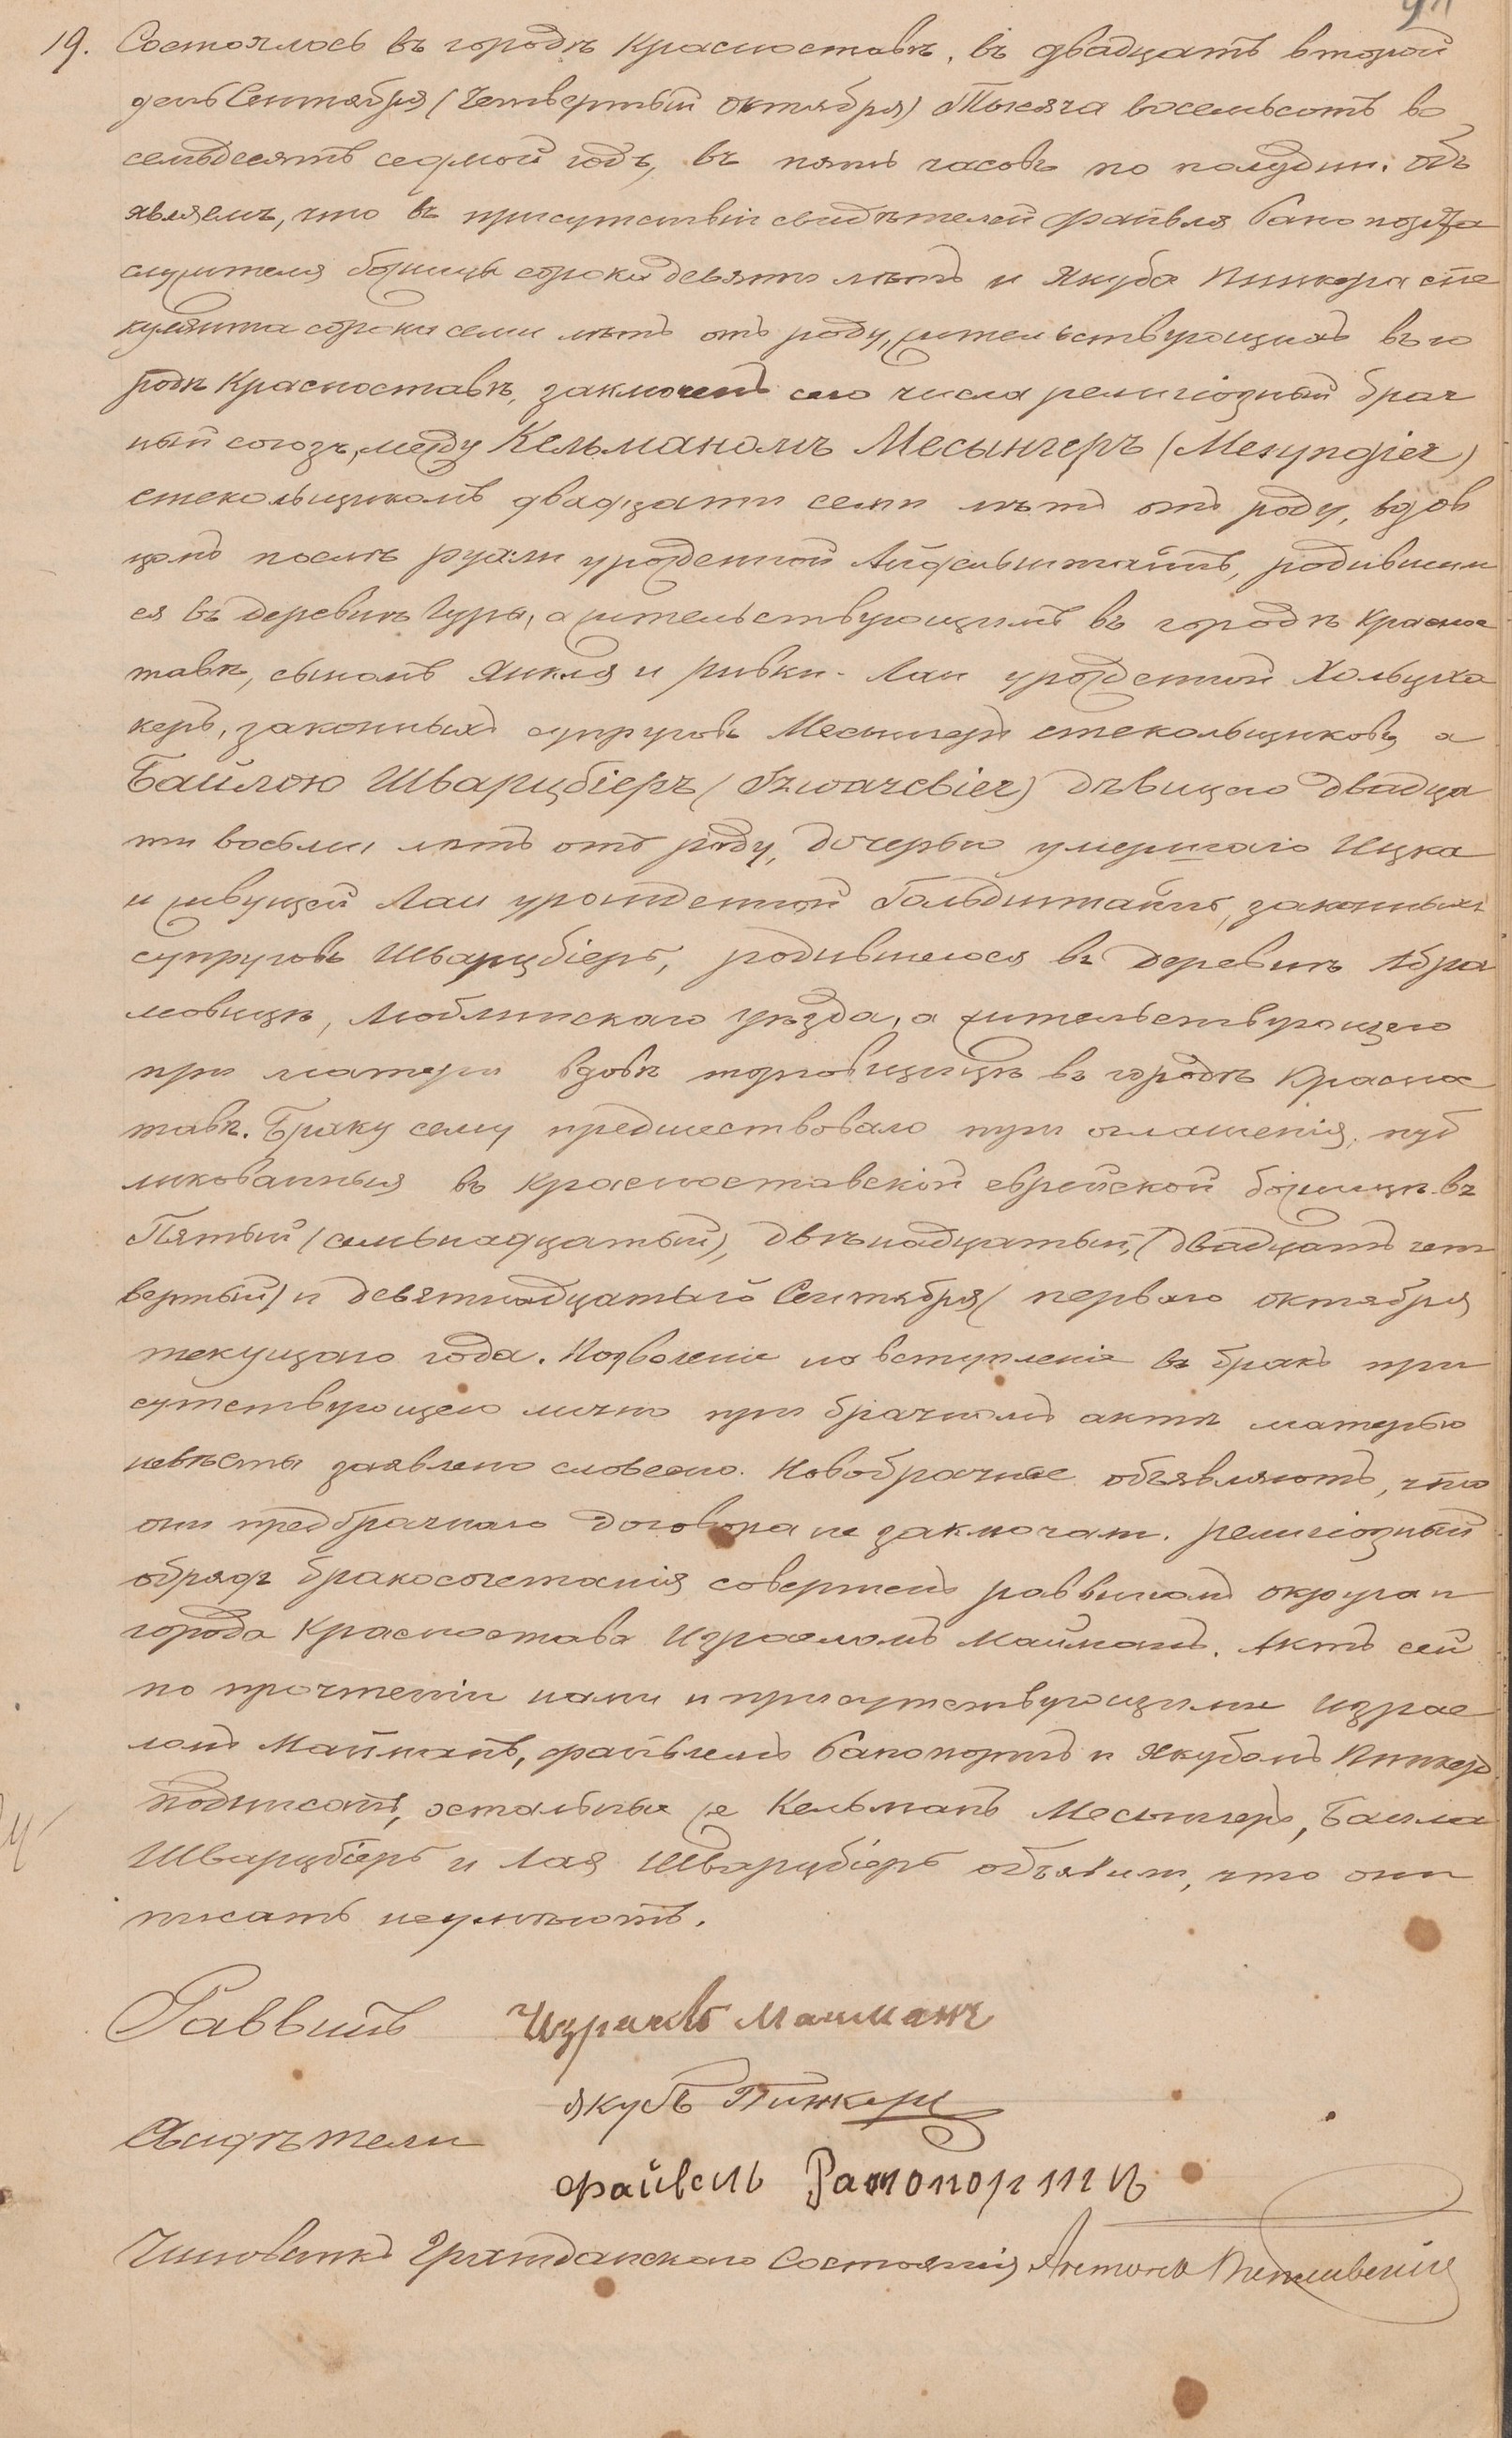 19. Состоялось въ городѣ Красноставѣ, въ двадцать второй
день Сентября (Четвертый Октября) Тысяча восемьсотъ во
семьдесятъ седмой годъ, въ пять часовъ по полудни. Объ
являемъ, что въ присутствіи свидѣтелей Файвля
служителя божницы сорока девяти лѣтъ и Якуба Пинкера спе
кулянта сорока семи лѣтъ отъ роду, жительствующихъ въ го
родѣ Красноставѣ, заключенъ сего числа религіозный брач
ный союзъ, между Кельманомъ Месынгеръ (Mesyngier)
стекольщикомъ двадцати семи лѣтъ отъ роду, вдов
цомъ послѣ Рухли урожденной Айдельштайнъ, родившим
ся въ деревнѣ Гуры, а жительствующимъ въ городѣ Краснос
тавѣ, сыномъ Янкля и Ривки-Лаи урожденной Хольцха
керъ, законныхъ супруговъ Месынгеръ стекольщиковъ, а
Байлою Шварцбіеръ (Szwarcbier) дѣвицею двадца
ти восьми лѣтъ отъ роду, дочерью умершаго Ицка
и живущей Лаи урожденной Гольдштайнъ, законныхъ
супруговъ Шварцбіеръ, родившеюся въ деревнѣ Абра
мовицѣ, Люблинскаго уѣзда, а жительствующею
при матери вдовѣ торговщицѣ въ городѣ Краснос
тавѣ. Браку сему предшествовало три оглашенія, пуб
ликованныя въ Красноставской еврейской божницѣ въ
Пятый (семьнадцатый), двѣнадцатый, (двадцать чет
вертый) и девятнадцатаго Сентября (перваго Октября
текущаго года. Позволеніе на вступленіе въ бракъ при
сутствующею лично при брачномъ актѣ матерью
невѣсты заявлено словесно. Новобрачные объявляютъ, что
они предбрачнаго договора не заключали. Религіозный
обрядъ бракосочетанія совершенъ раввиномъ округа и
города Красностава Израелемъ Майманъ. Актъ сей
по прочтеніи нами и присутствующими Израе
лемъ Майманъ, Файвлемъ Рапопортъ и Якубомъ Пинкеръ
подписанъ, остальные же Кельманъ Месынгеръ, Байла
Шварцбіеръ и Лая Шварцбіеръ объявили, что они
писать неумѣютъ.
Раввинъ Израель Майманъ
Якубъ Пинкеръ
Свидѣтели
Файвель Рапопортъ
Чиновникъ Гражданскаго Состоянія